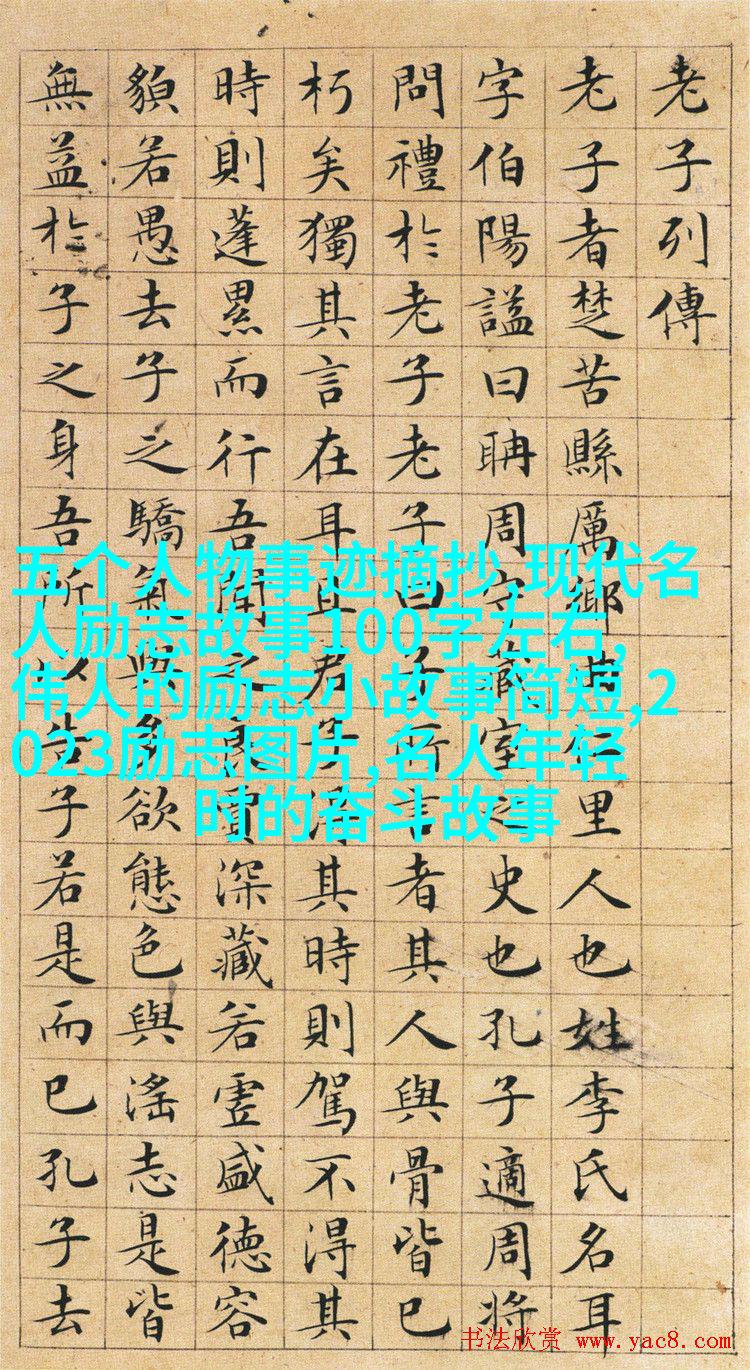 老子列傳
老子者楚苦縣厲鄉曲仁里人也姓李氏名耳
字伯陽謚曰聃周守藏室之史也孔子適周將
問禮於老子老子曰子所言者其人與骨皆已
朽矣獨其言在耳且君子得其時則駕不得其
時則蓬累而行吾聞之良賈深藏若虛盛德容
貌若愚去子之驕氣與多欲態色與淫志是皆
無益於子之身吾所以告子若是而已孔子去
五个人物事迹摘抄,现代名
人励志故事100字左右,
伟人的励志小故事简短,2
023励志图片,名人年轻
时的奋斗故事
书法欣赏 www.yac8.com